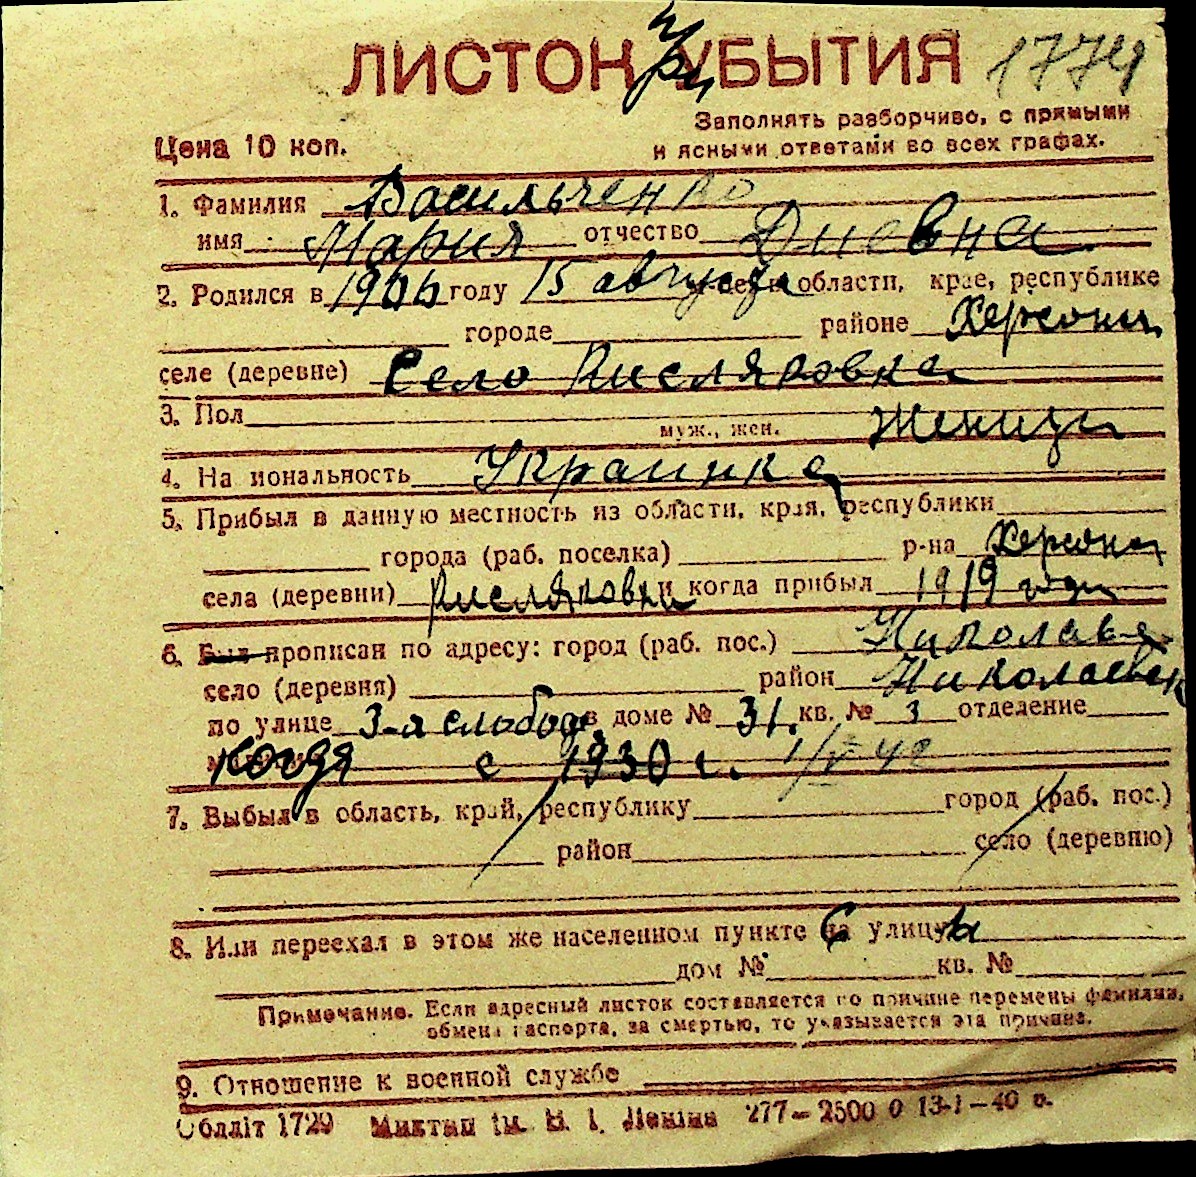 ЛИСТОК УБЫТИЯ 1774
Заполнять разборчиво, с прямыми
Цена 10 коп. и ясными ответами во всех графах.
1. Фамилия Васильченко
имя Мария отчество
2. Родился в 1906 году 15 августа области, крае, республике
городе районе Херсонщ
селе (деревне) Село Кисляковка
3. Пол муж., жен. Женщи
4. На иональность Украинка
5. Прибыл в данную местность из области, края, республики
города (раб. поселка) р-на Херсонщ
села (деревни) Кисляковки и когда прибыл 1919 году
6. Был прописан по адресу: город (раб. пос.) Николаев
село (деревня) район Николаевск
по улице 3-я слобод в доме № 31. кв. № 3 отделение
когда с 1930 г.
7. Выбыл в область, край, республику город (раб. пос.)
район село (деревню)
8. Или переехал в этом же населенном пункте на улицу
дом № кв. №
Примечание. Если адресный листок составляется по причине перемены фамилии,
обмена паспорта, за смертью, то указывается эта причина.
9. Отношение к военной службе
Облліт 1729 Миктип ім. В. І. Леніна 277—2500 0 13-1—40 р.